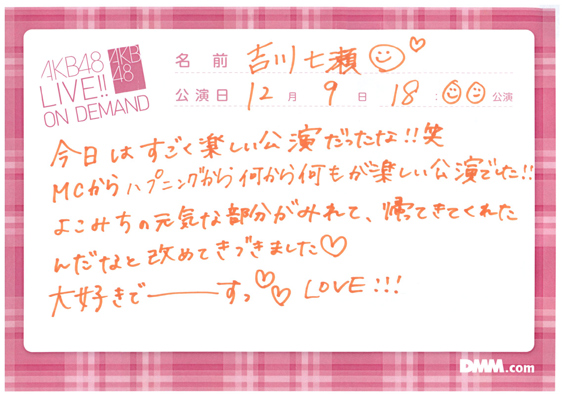 AKB48
LIVE!!
ON DEMAND
AKB
48
名前 吉川七瀬
公演日 12月9日 18:00公演
今日はすごく楽しい公演だったな!!笑
MCからハプニングから何から何もが楽しい公演でした!!
よこみちの元気な部分がみれて、帰ってきてくれた
んだなと改めてきづきました♡
大好きで――すっ♡♡ LOVE!!!
DMM.com